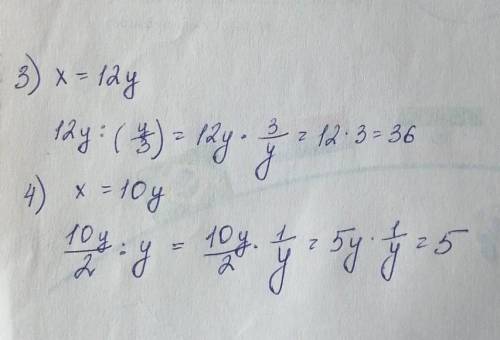 3) x = 12y
12y : (y/3) = 12y · 3/y = 12 · 3 = 36
4) x = 10y
10y/2 : y = 10y/2 · 1/y = 5y · 1/y = 5